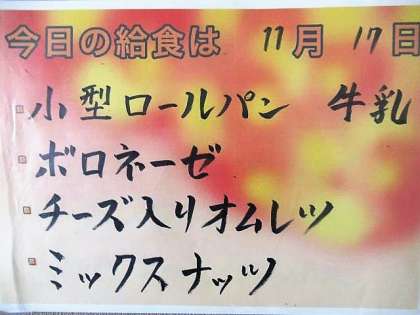 今日の給食は 11月 17日
小型ロールパン 牛乳
ボロネーゼ
チーズ入りオムレツ
ミックスナッツ